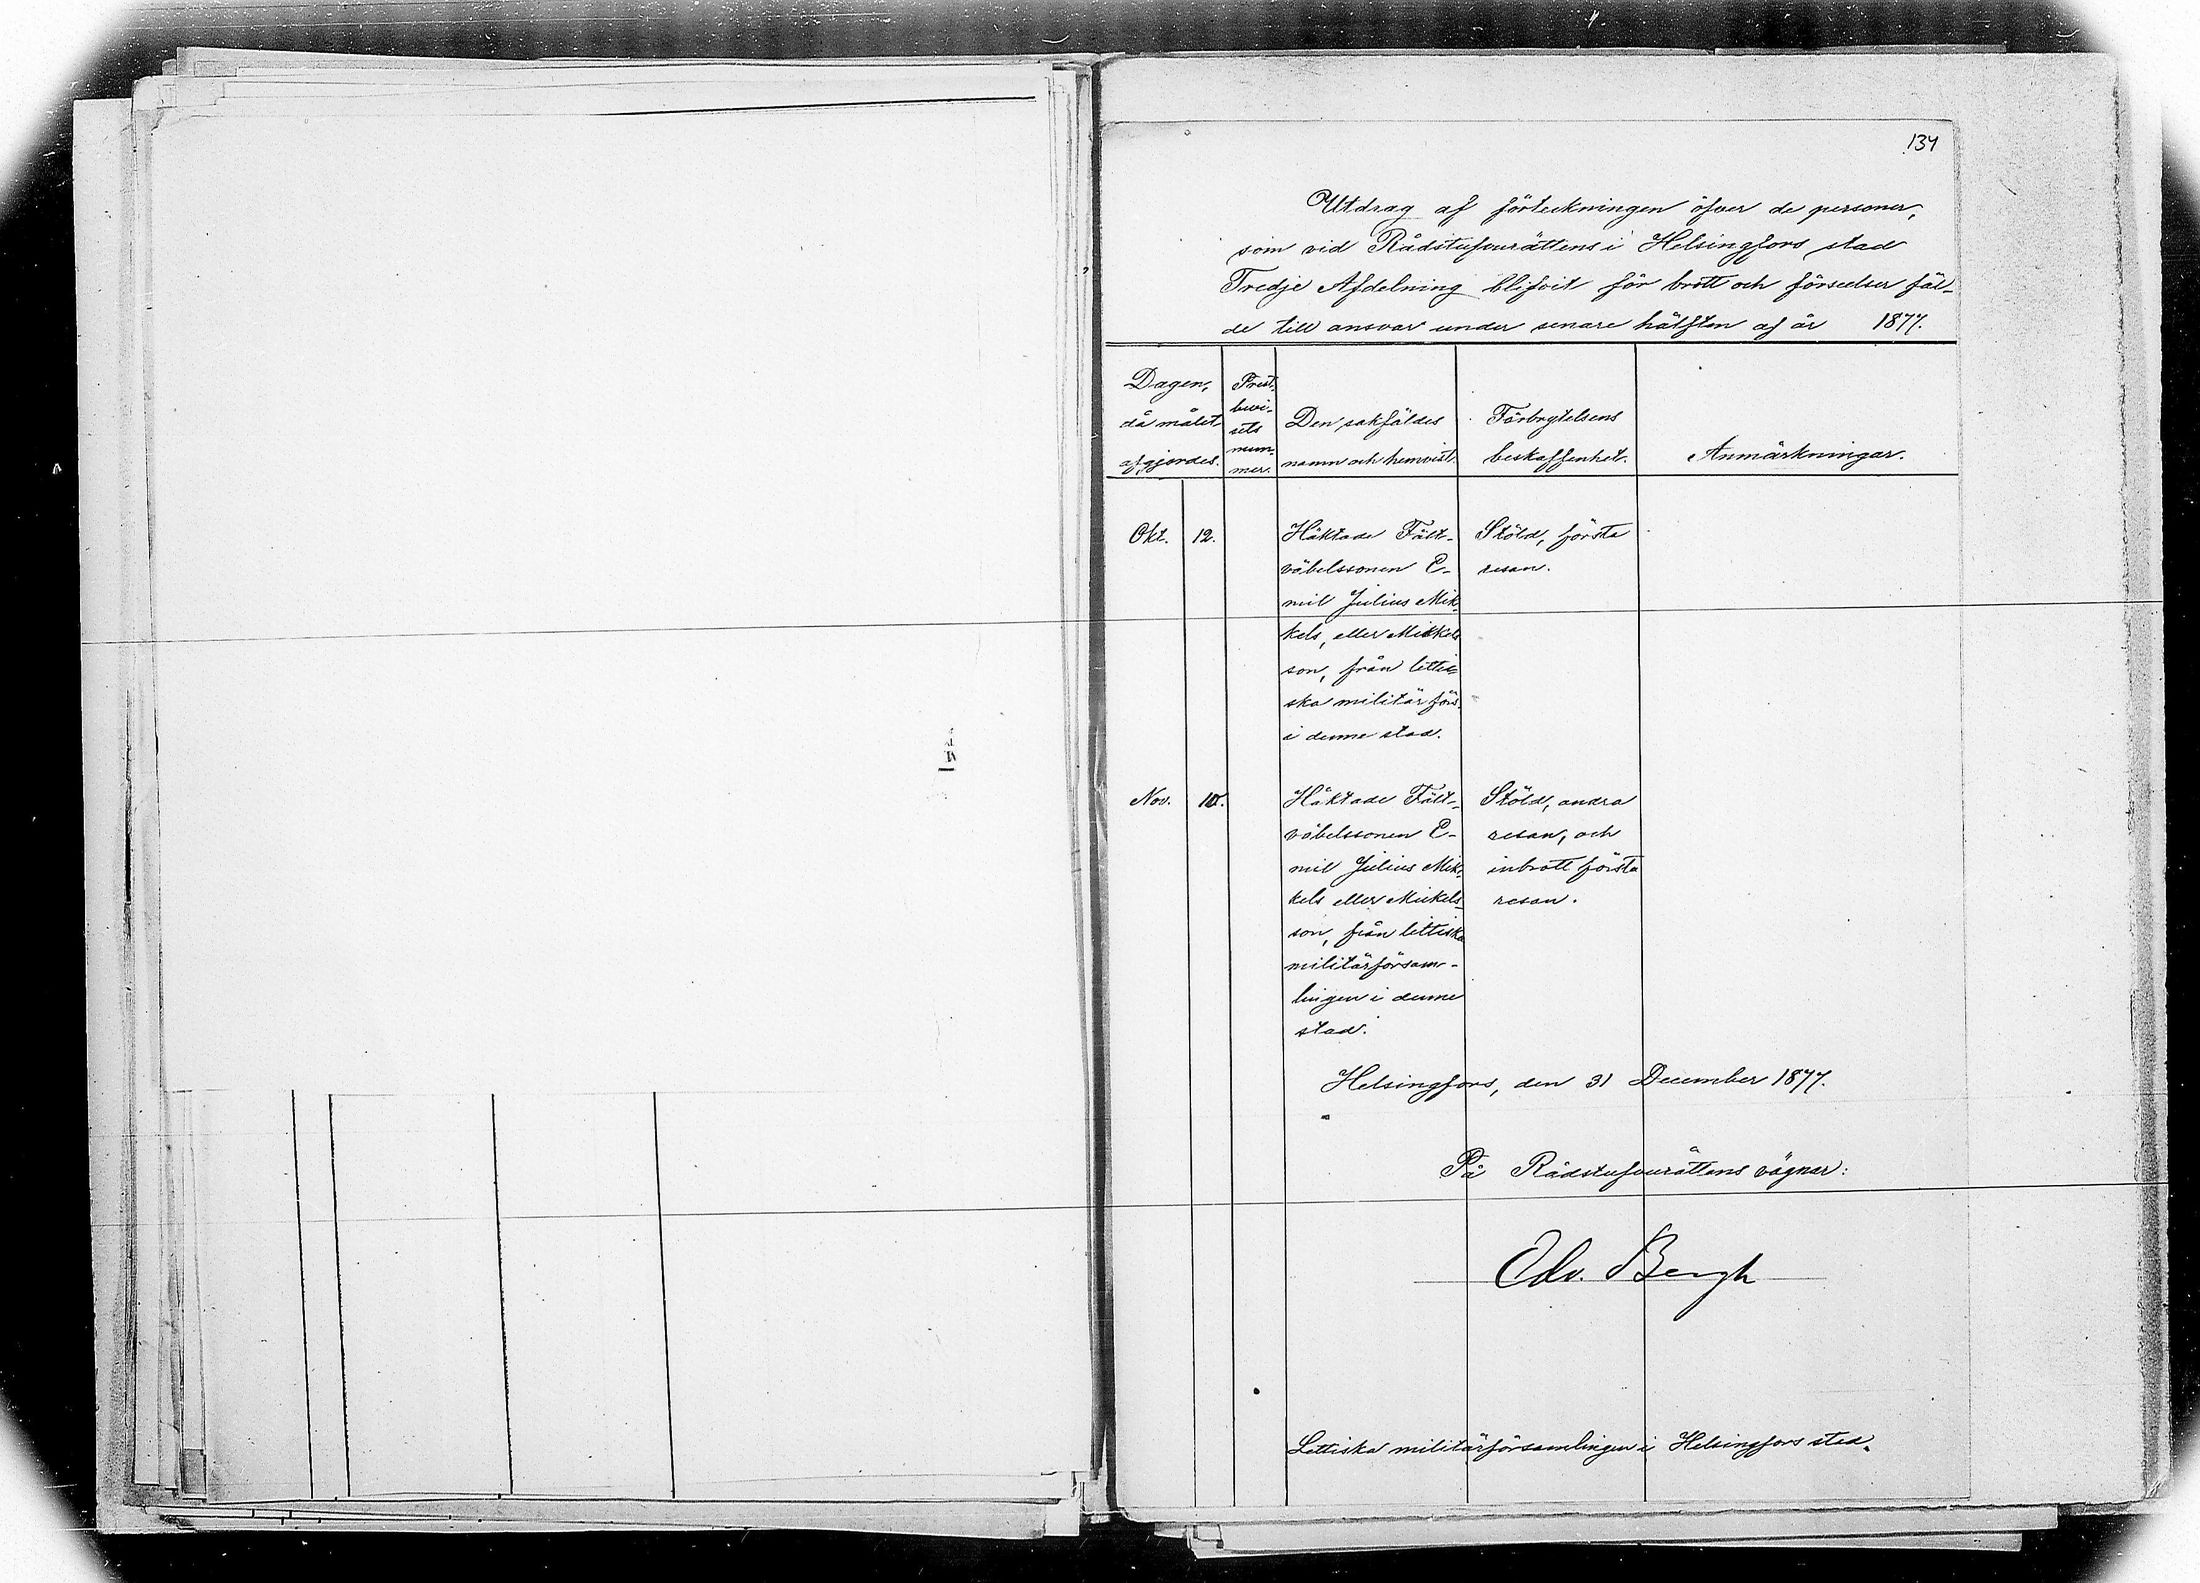 134
Utdrag af förteckningen öfver de personer,
som vid Rådstufvurättens i Helsingfors stad
Tredje Afdelning blifvit för brott och förseelser fäl-
de till ansvar under senare hälften af år 1877.
Dagen,
då målet
afgjordes.
Prest-
bevi-
sets
num-
mer.
Den sakfäldes
namn och hemvist.
Förbrytelsens
beskaffenhet.
Anmärkningar.
Okt. 12.
Häktade Fält-
väbelssonen E-
mil Julius Mik-
kels, eller Mickels
son, från lettis-
ska militär förs.
i denna stad.
Stöld, första
resan.
Nov. 10.
Häktade Fält-
väbelssonen E-
mil Julius Mik-
kels eller Mickels-
son, från lettiska
militärförsam-
lingen i denna
stad.
Stöld, andra
resan, och
inbrott första
resan.
Helsingfors, den 31 December 1877.
På Rådstufvurättens vägnar:
Edv. Bergh
Lettiska militärförsamlingen i Helsingfors stad.